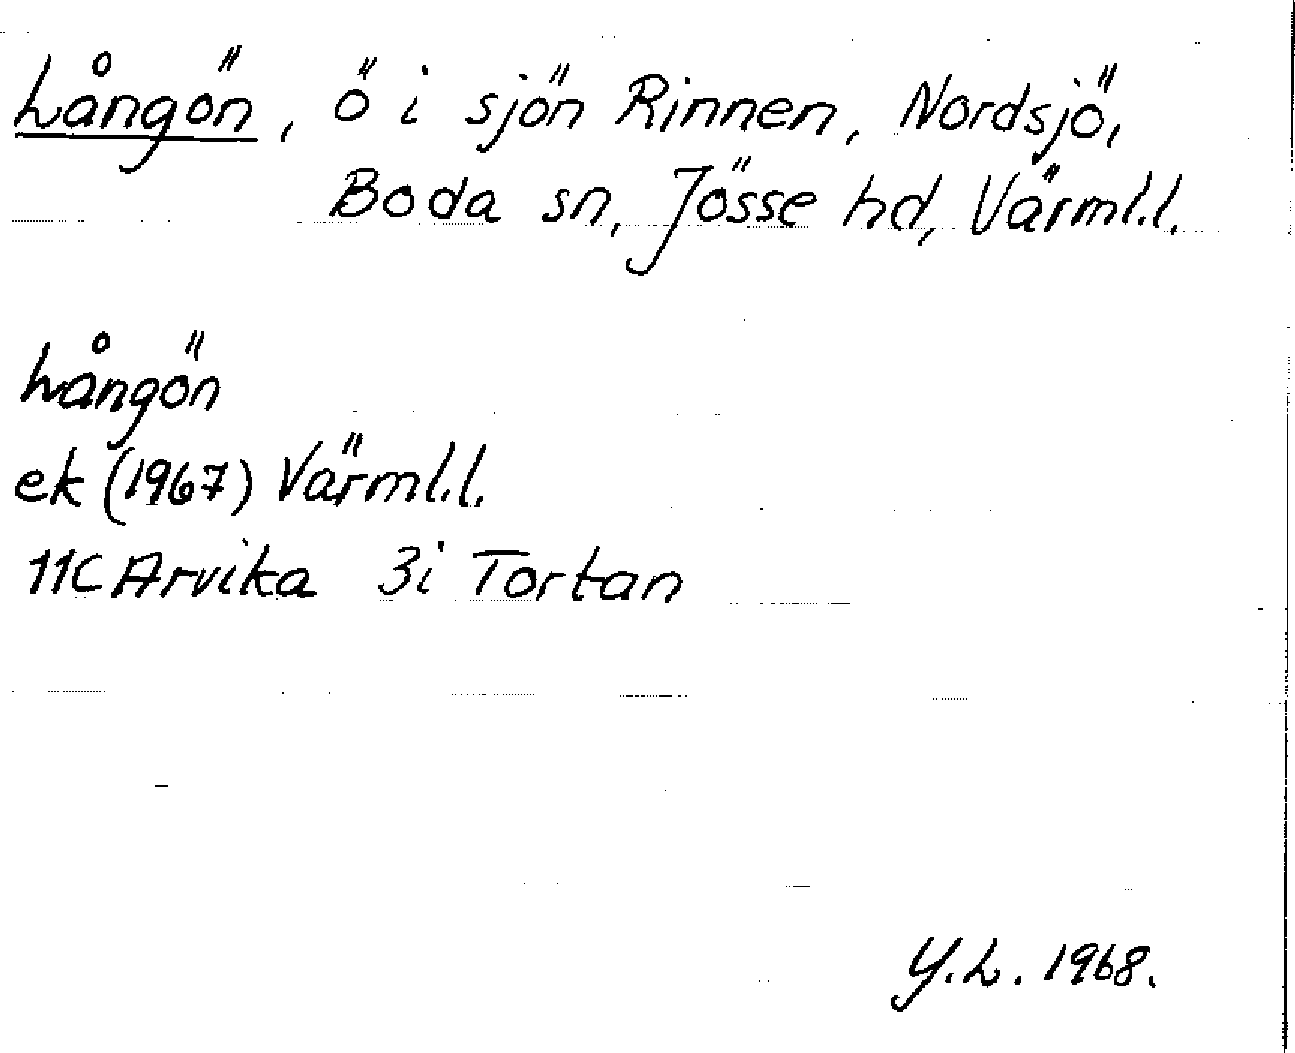 Långön, ö i sjön Rinnen, Nordsjö,
Boda sn, Jösse hd, Värml.l.
Långön
ek (1967) Värml.l.
11C Arvika 3i Tortan
Y.L. 1968.